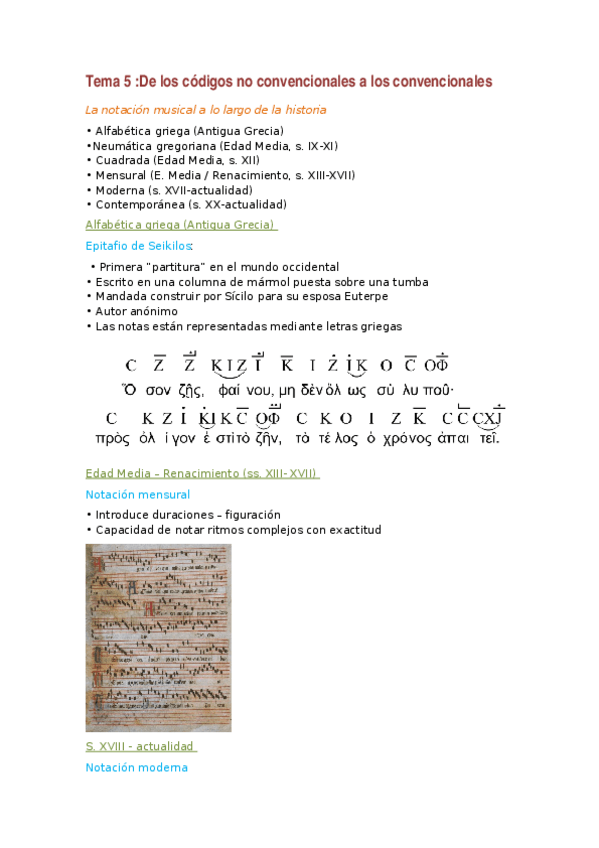 Tema 5 :De los códigos no convencionales a los convencionales
La notación musical a lo largo de la historia
• Alfabética griega (Antigua Grecia)
•Neumática gregoriana (Edad Media, s. IX-XI)
• Cuadrada (Edad Media, s. XII)
• Mensural (E. Media / Renacimiento, s. XIII-XVII)
• Moderna (s. XVII-actualidad)
• Contemporánea (s. XX-actualidad)
Alfabética griega (Antigua Grecia)
Epitafio de Seikilos:
• Primera "partitura" en el mundo occidental
• Escrito en una columna de mármol puesta sobre una tumba
• Mandada construir por Sícilo para su esposa Euterpe
• Autor anónimo
• Las notas están representadas mediante letras griegas
C Z̅ Z̅ K I Z I̅ K̅ I Ż I K O C̅ OΦ
Ὅ σον ζῇς, φαί νου, μη δὲν ὅλ ως σὺ λυ ποῦ·
C K Z I K I K C̅ OΦ C K O I Z K̅ C C̅ C̅XJ
πρὸς ὀλ ί γον ἐ στὶ τὸ ζῆν, τὸ τέ λος ὁ χρόνος ἀπαι τεῖ.
Edad Media – Renacimiento (ss. XIII- XVII)
Notación mensural
• Introduce duraciones – figuración
• Capacidad de notar ritmos complejos con exactitud
S. XVIII - actualidad
Notación moderna